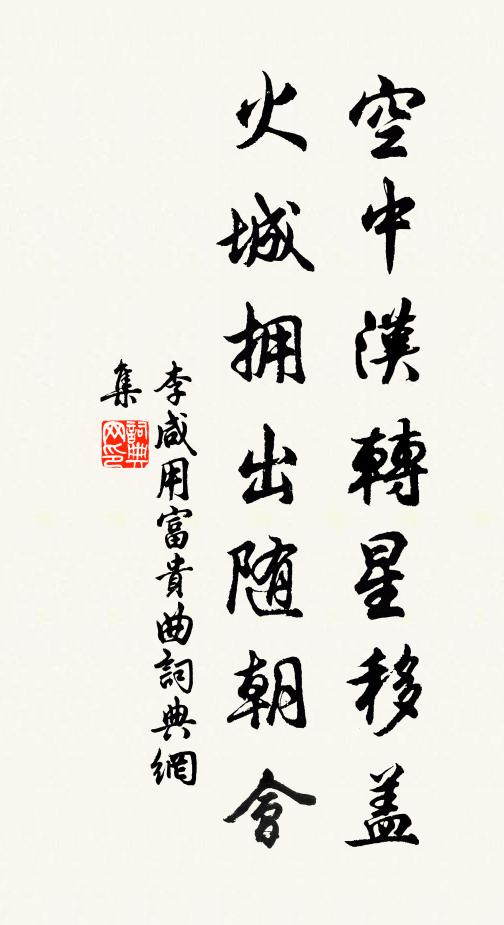 空中漢轉星移盖
火城拥出随朝會
李咸用富貴曲詞典網
集
詞典网印